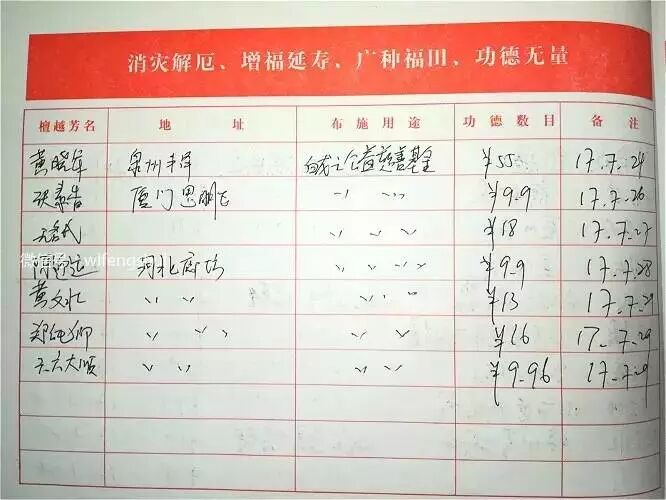 消灾解厄、增福延寿、广种福田、功德无量
檀越芳名 地 址 布施用途 功德数目 备 注
黄晓军 泉州丰泽 公益慈善基金 ¥55 17.7.24
张泰吉 厦门思明区 〃 〃 ¥9.9 17.7.26
无名氏 〃 〃 ¥18 17.7.27
微信号:wlfeng 河北廊坊 〃 〃 ¥9.9 17.7.28
黄文水 〃 〃 〃 〃 ¥13 17.7.29
郑 仰 〃 〃 〃 〃 ¥16 17.7.29
六六大顺 〃 〃 〃 〃 ¥9.96 17.7.29